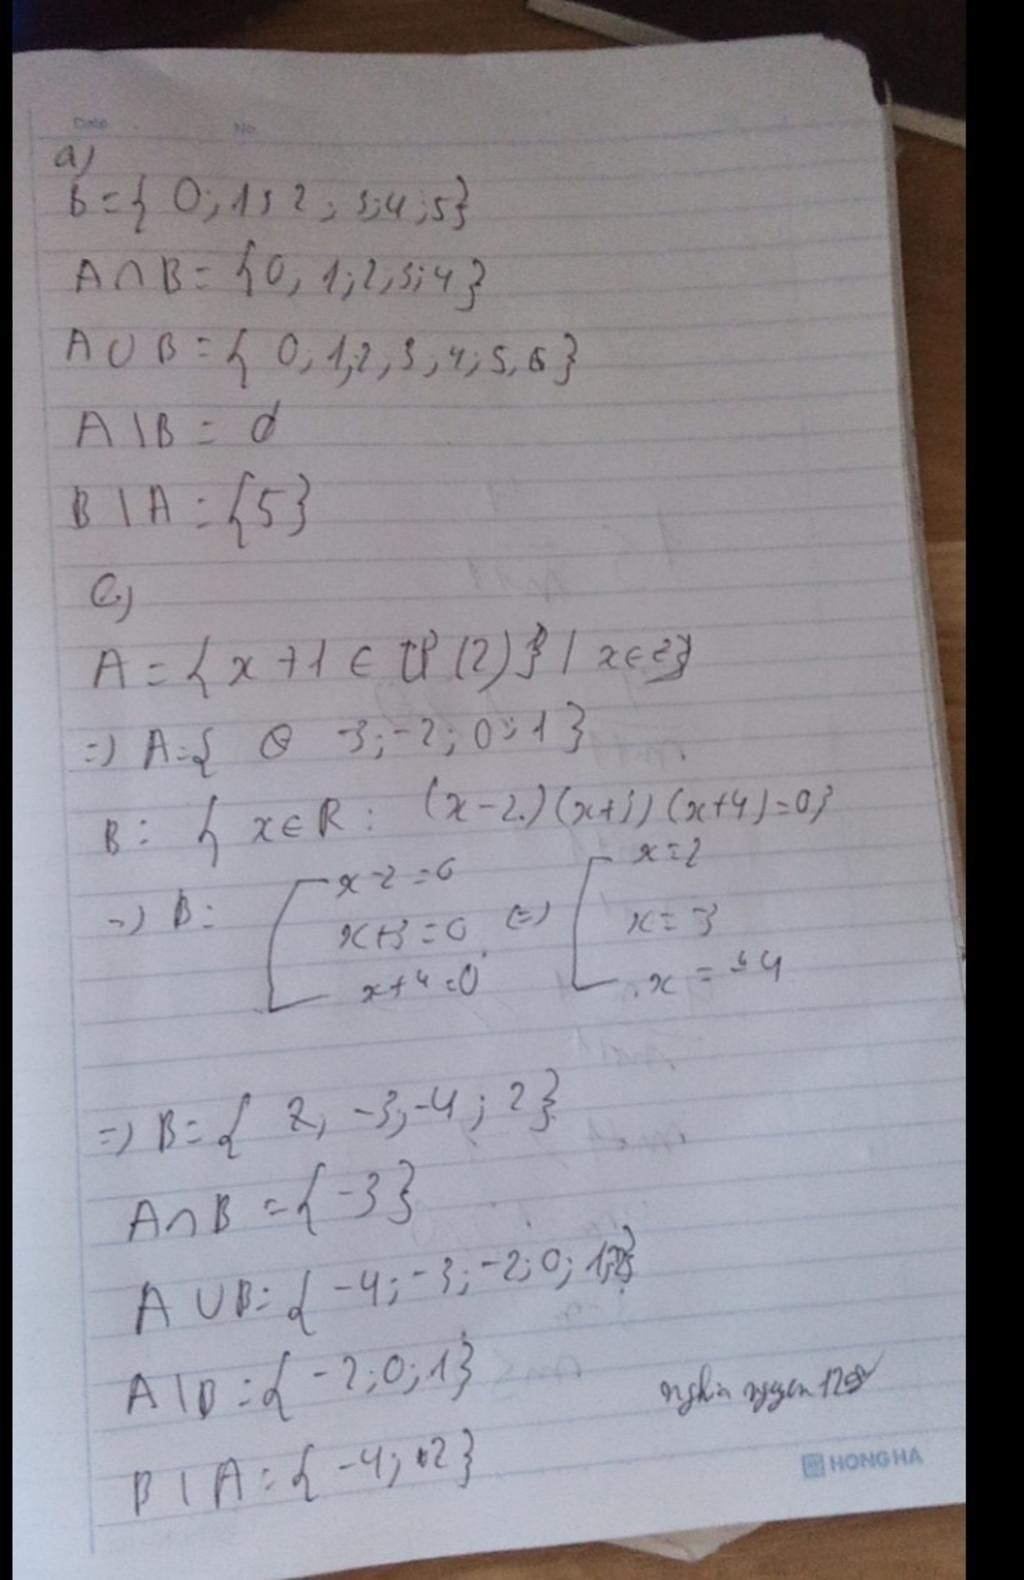 Date No
a)
B = { 0; 1; 2; 3; 4; 5}
A ∩ B = {0, 1; 2, 3; 4}
A ∪ B = { 0, 1, 2, 3, 4; 5, 6 }
A \ B = ∅
B \ A = {5}
c)
A = { x + 1 ∈ Ư (2) } | x ∈ Z}
=> A = { -3; -2; 0; 1 }
B = { x ∈ R : (x-2) (x+3) (x+4) = 0}
=> B = [ x-2 = 0 <=> [ x = 2
x+3 = 0 x = -3
x+4 = 0 x = -4
=> B = { 2, -3, -4; 2 }
A ∩ B = { -3 }
A ∪ B = { -4; -3; -2; 0; 1; 2}
A \ B = { -2; 0; 1 }
B \ A = { -4; 2 }
HONG HA